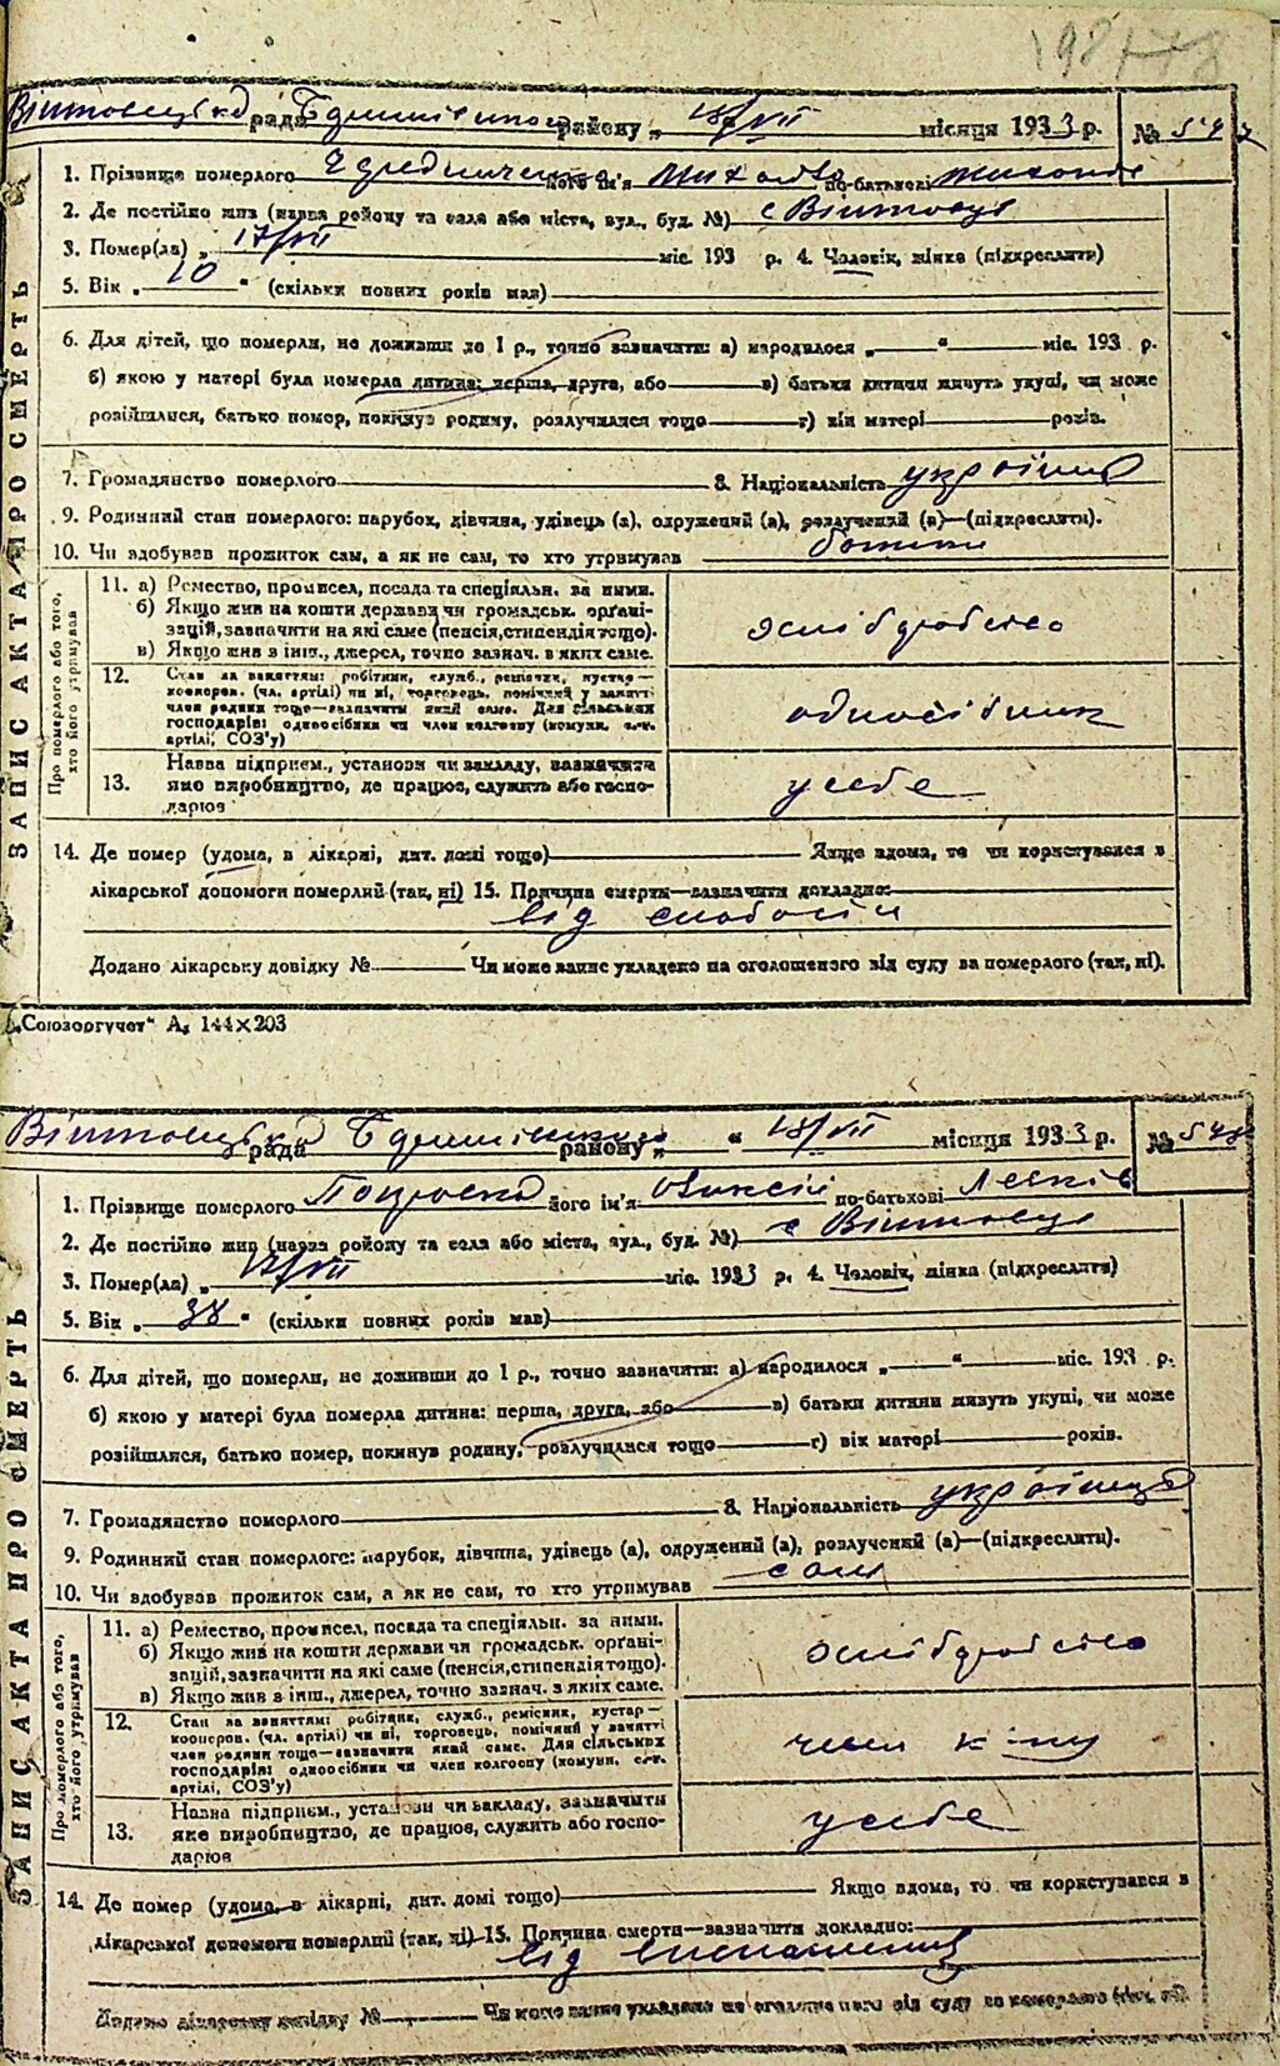 198
рада району „ 18/VII місяця 1933 р. № 547
1. Прізвище померлого Чередниченко його ім'я Михайло по-батькові
2. Де постійно жив (назва району та села або міста, вул., буд. №) с Війтовці
3. Помер(ла) „ 17/VII міс. 193 р. 4. Чоловік, жінка (підкреслити)
5. Вік „ 10 “ (скільки повних років мав)
6. Для дітей, що померли, не доживши до 1 р., точно зазначити: а) народилося „ “ міс. 193 р.
б) якою у матері була померла дитина: перша, друга, або в) батьки дитини живуть укупі, чи може
розійшлися, батько помер, покинув родину, розлучилися тощо г) вік матері років.
7. Громадянство померлого 8. Національність
9. Родинний стан померлого: парубок, дівчина, удівець (а), одружений (а), розлучений (а)—(підкреслити).
10. Чи здобував прожиток сам, а як не сам, то хто утримував батьки
ЗАПИС АКТА ПРО СМЕРТЬ
Про померлого або того, хто його утримував
11. а) Ремество, промисел, посада та спеціяльн. за ними.
б) Якщо жив на кошти держави чи громадськ. орґані-
зацій, зазначити на які саме (пенсія, стипендія тощо).
в) Якщо жив з інш., джерел, точно зазнач. з яких саме.
хліборобство
12. Стан за заняттям: робітник, служб., ремісник, кустар—
кооперов. (чл. артілі) чи ні, торговець, помічний у занятті
член родини тощо—зазначити який саме. Для сільських
господарів: одноосібник чи член колгоспу (комуни, с.-г.
артілі, СОЗ'у)
одноосібник
13. Назва підприєм., установи чи закладу, зазначити
яке виробництво, де працює, служить або госпо-
дарює
у себе
14. Де помер (удома, в лікарні, дит. домі тощо) Якщо вдома, то чи користувався в
лікарської допомоги померлий (так, ні) 15. Причина смерти—зазначити докладно:
від слабости
Додано лікарську довідку № Чи може запис укладено на оголошеного від суду за померлого (так, ні).
„Союзоргучет“ А₅ 144×203
рада району „ “ 18/VII місяця 1933 р. № 548
1. Прізвище померлого його ім'я Олексій по-батькові
2. Де постійно жив (назва району та села або міста, вул., буд. №) с Війтовці
3. Помер(ла) „ 17/VII міс. 1933 р. 4. Чоловік, жінка (підкреслити)
5. Вік „ 38 “ (скільки повних років мав)
6. Для дітей, що померли, не доживши до 1 р., точно зазначити: а) народилося „ “ міс. 193 р.
б) якою у матері була померла дитина: перша, друга, або в) батьки дитини живуть укупі, чи може
розійшлися, батько помер, покинув родину, розлучилися тощо г) вік матері років.
7. Громадянство померлого 8. Національність
9. Родинний стан померлого: парубок, дівчина, удівець (а), одружений (а), розлучений (а)—(підкреслити).
10. Чи здобував прожиток сам, а як не сам, то хто утримував сам
ЗАПИС АКТА ПРО СМЕРТЬ
Про померлого або того, хто його утримував
11. а) Ремество, промисел, посада та спеціяльн. за ними.
б) Якщо жив на кошти держави чи громадськ. орґані-
зацій, зазначити на які саме (пенсія, стипендія тощо).
в) Якщо жив з інш., джерел, точно зазнач. з яких саме.
хліборобство
12. Стан за заняттям: робітник, служб., ремісник, кустар—
кооперов. (чл. артілі) чи ні, торговець, помічний у занятті
член родини тощо—зазначити який саме. Для сільських
господарів: одноосібник чи член колгоспу (комуни, с.-г.
артілі, СОЗ'у)
член
13. Назва підприєм., установи чи закладу, зазначити
яке виробництво, де працює, служить або госпо-
дарює
у себе
14. Де помер (удома, в лікарні, дит. домі тощо) Якщо вдома, то чи користувався в
лікарської допомоги померлий (так, ні) 15. Причина смерти—зазначити докладно:
від
Додано лікарську довідку № Чи може запис укладено на оголошеного від суду за померлого (так, ні).